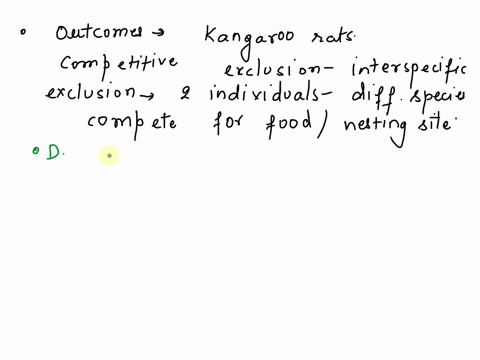 • Outcomes → Kangaroo rats.
competitive exclusion- interspecific
exclusion → 2 individuals- diff. species
compete for food/ nesting site.
• D.